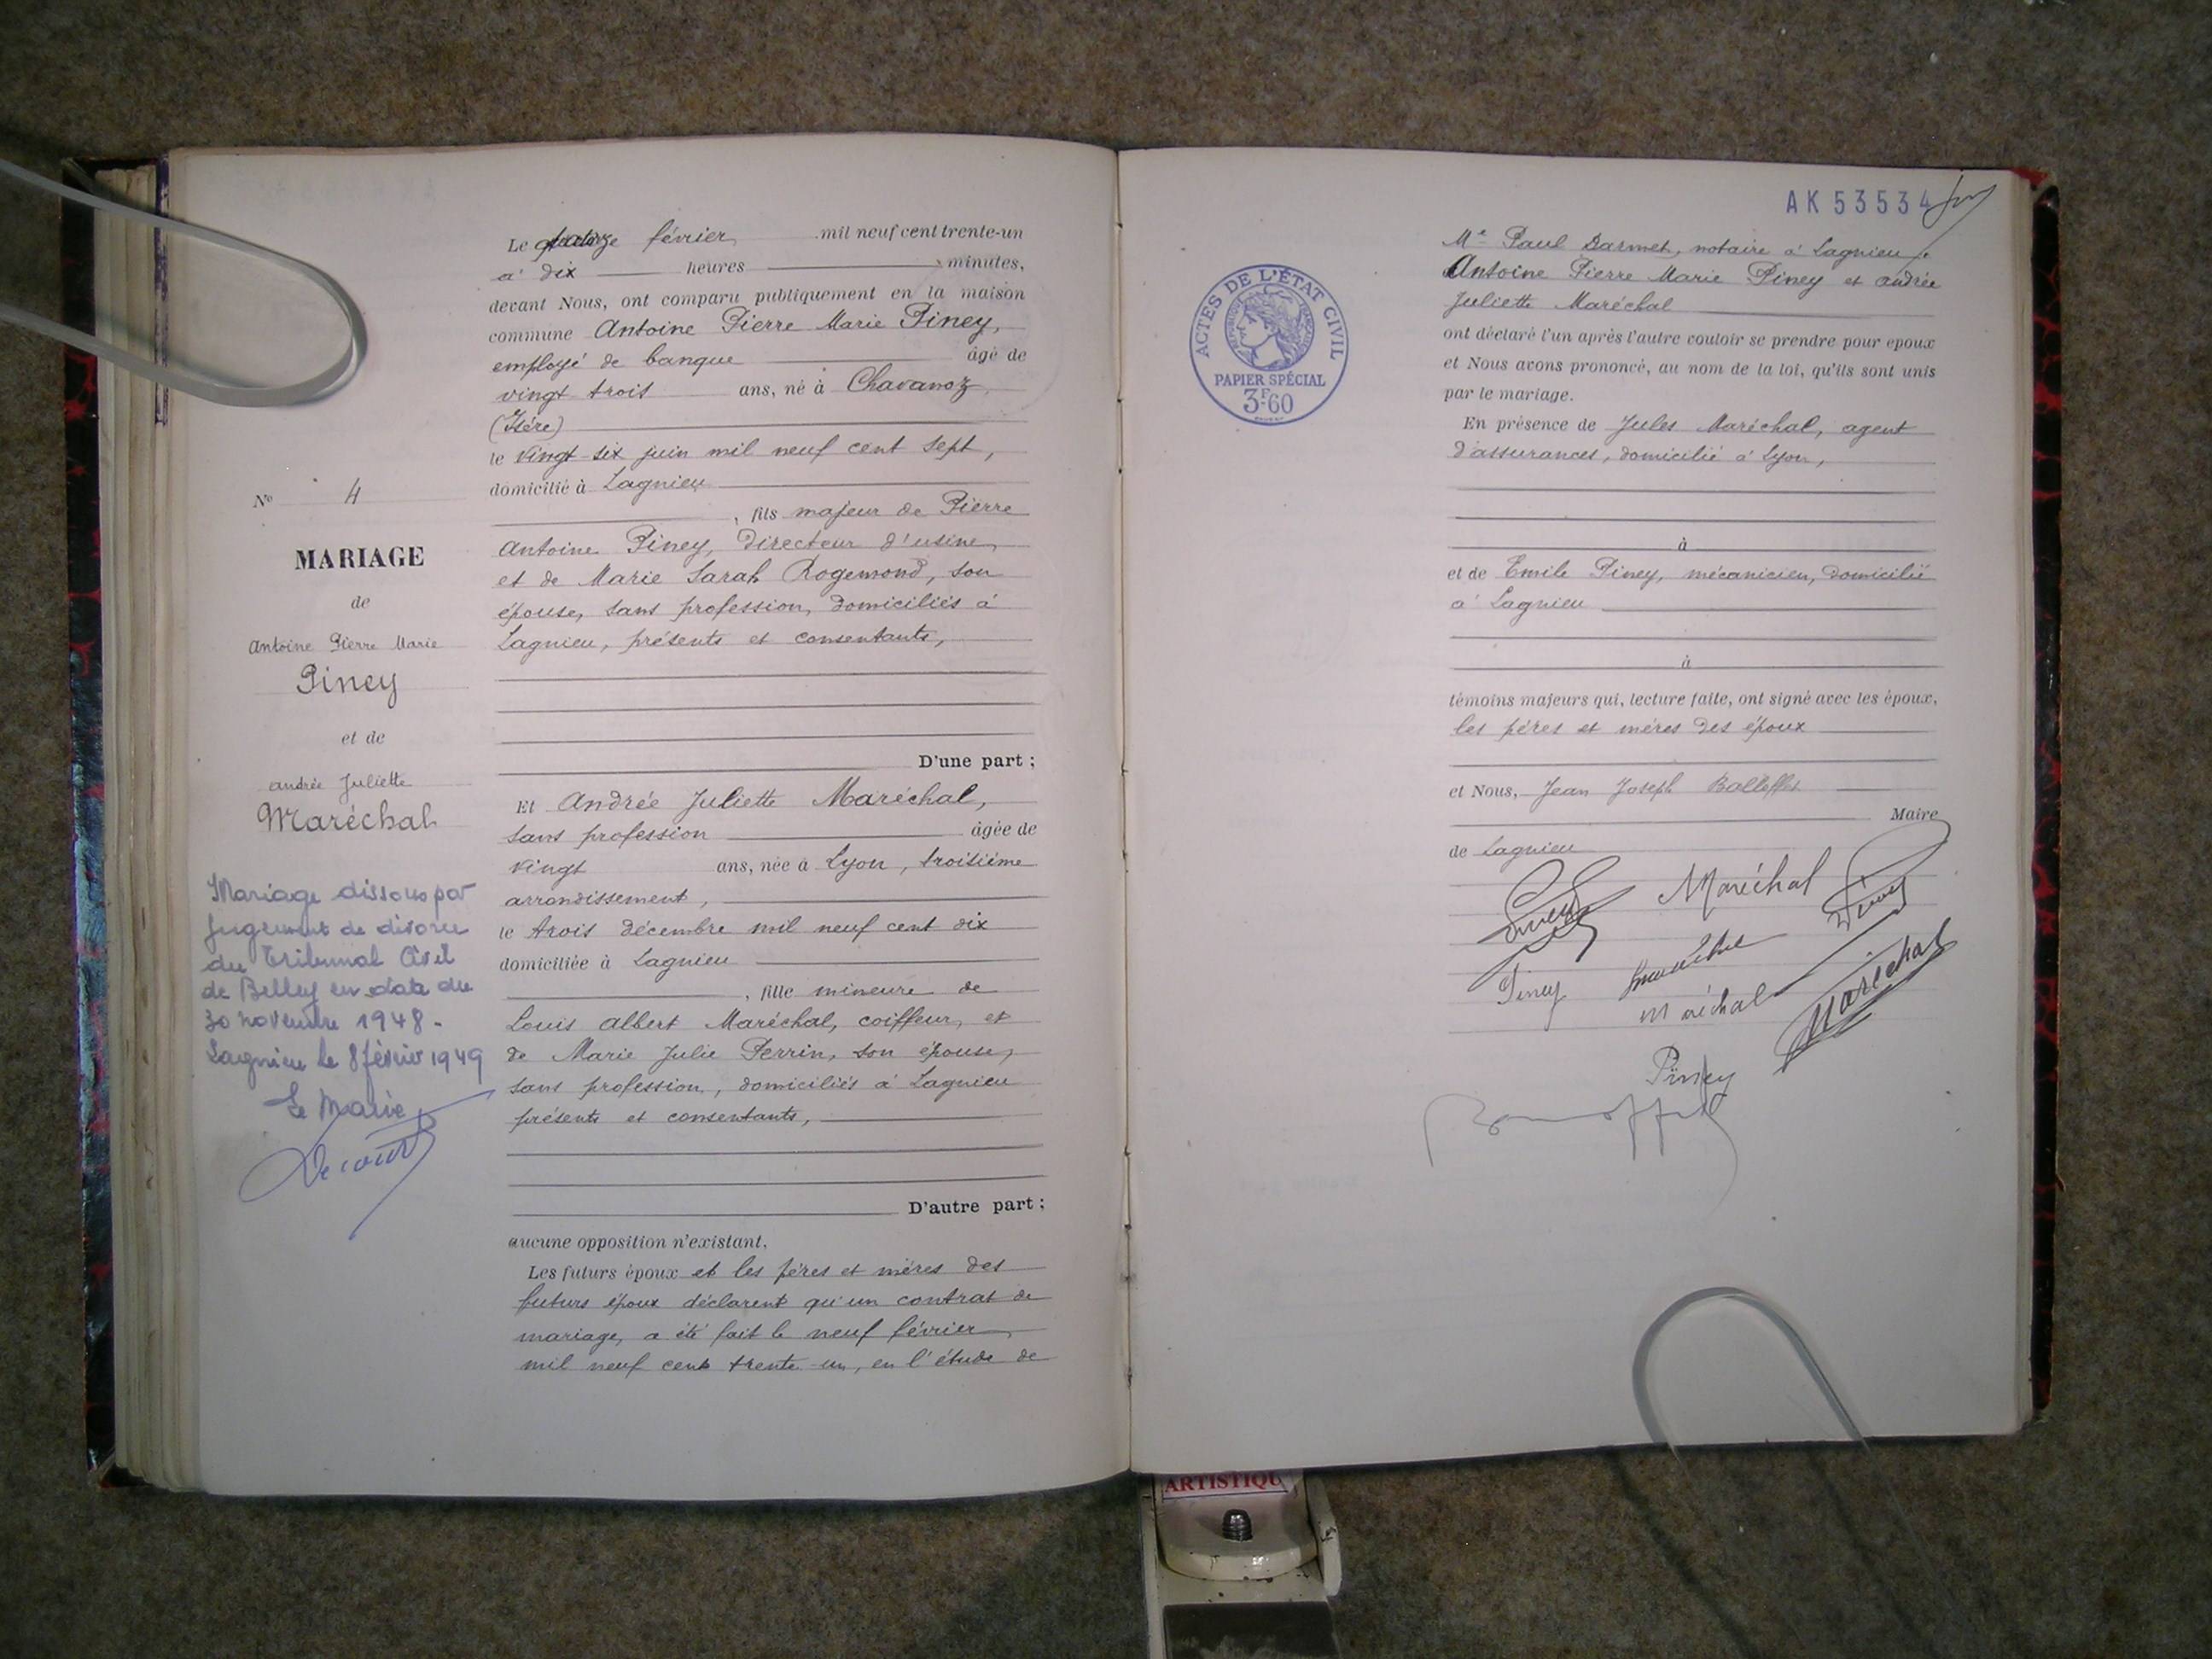 Nº 4
MARIAGE
de
Antoine Pierre Marie
Piney
et de
Andrée Juliette
Maréchal
Mariage dissous par
jugement de divorce
du Tribunal Civil
de Belley en date du
30 novembre 1948 -
Lagnieu le 8 février 1949
Le Maire
Le quatorze février mil neuf cent trente-un
à dix heures minutes,
devant Nous, ont comparu publiquement en la maison
commune Antoine Pierre Marie Piney,
employé de banque âgé de
vingt trois ans, né à Chavanoz,
(Isère)
le vingt-six juin mil neuf cent sept,
domicilié à Lagnieu
, fils majeur de Pierre
Antoine Piney, Directeur d'usine,
et de Marie Sarah Rogemond, son
épouse, sans profession, domiciliés à
Lagnieu, présents et consentants,
D'une part ;
Et Andrée Juliette Maréchal,
sans profession âgée de
vingt ans, née à Lyon, troisième
arrondissement,
le trois décembre mil neuf cent dix
domiciliée à Lagnieu
, fille mineure de
Louis Albert Maréchal, coiffeur, et
de Marie Julie Perrin, son épouse,
sans profession, domiciliés à Lagnieu
présents et consentants,
D'autre part ;
aucune opposition n'existant,
Les futurs époux et les pères et mères des
futurs époux déclarent qu'un contrat de
mariage, a été fait le neuf février
mil neuf cent trente-un, en l'étude de
AK 53534
ACTES DE L'ÉTAT CIVIL
RÉPUBLIQUE FRANÇAISE
PAPIER SPÉCIAL
3F60
Me Paul Darmet, notaire à Lagnieu.
Antoine Pierre Marie Piney et Andrée
Juliette Maréchal
ont déclaré l'un après l'autre vouloir se prendre pour époux
et Nous avons prononcé, au nom de la loi, qu'ils sont unis
par le mariage.
En présence de Jules Maréchal, agent
d'assurances, domicilié à Lyon,
à
et de Emile Piney, mécanicien, domicilié
à Lagnieu
à
témoins majeurs qui, lecture faite, ont signé avec les époux,
les pères et mères des époux
et Nous, Jean Joseph
Maire
de Lagnieu
Piney Maréchal Piney
Piney
Maréchal Maréchal
Piney
ARTISTIQU